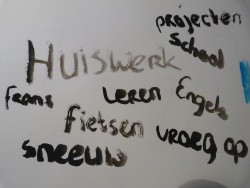 projecten
School
Huiswerk
frans leren Engels
fietsen vroeg op
sneeuw